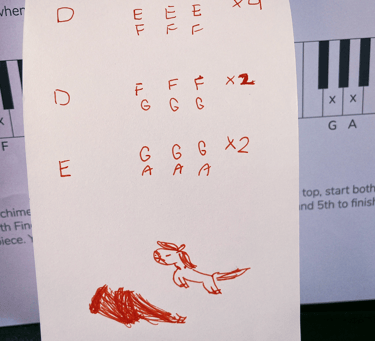 when
D E E E x4
F F F
D F F F x2
G G G
E G G G x2
A A A
F
x x
G A
chime
th Fin
iece.
top, start both
nd 5th to finish